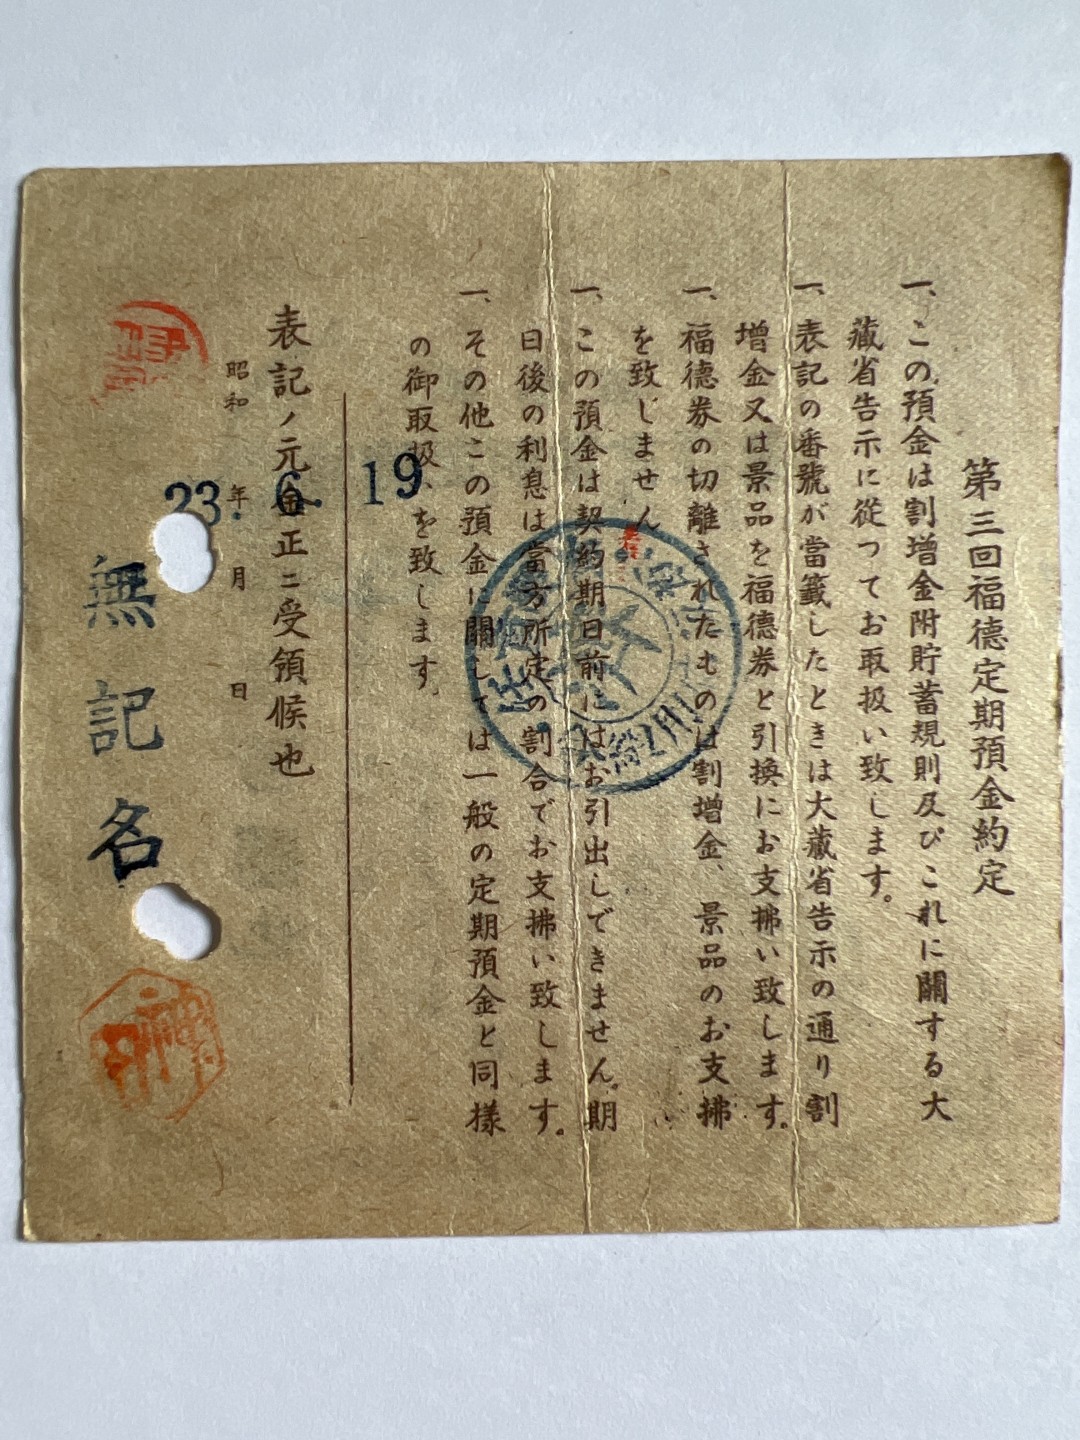 第三回福德定期預金約定
一、この預金は割増金附貯蓄規則及びこれに關する大
藏省告示に從つてお取扱い致します。
一、表記の番號が當籤したときは大藏省告示の通り割
增金又は景品を福德券と引換にお支拂い致します。
一、福德券の切離されたものは割增金、景品のお支拂
を致しません
一、この預金は契約期日前にはお引出しできません。期
日後の利息は當方所定の割合でお支拂い致します。
一、その他この預金に關しては一般の定期預金と同樣
の御取扱を致します。
表記ノ元金正ニ受領候也
昭和 年 月 日
23. 6. 19
無記名